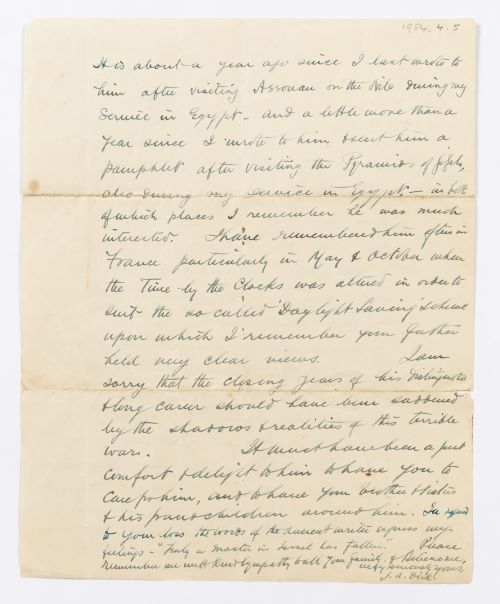 1984.4.5
It is about a year ago since I last wrote to
him after visiting Assouan on the Nile during my
Service in Egypt - and a little more than a
year since I wrote to him & sent him a
pamphlet after visiting the Pyramids of
also during my service in Egypt. - in both
of which places I remember he was much
interested. I have remembered him often in
France particularly in May & October when
the Time by the Clocks was altered in order to
suit the so called 'Daylight Saving' Scheme
upon which I remember your father
held very clear views. I am
sorry that the closing years of his distinguished
& long career should have been saddened
by the shadows & realities of this terrible
war. It must have been a great
comfort & delight to him to have you to
care for him, and to have your brother & sisters
& his grandchildren around him. In regard
to your loss the words of the ancient writer express my
feelings - "Truly a master in Israel has fallen". Please
remember me with kind sympathy to all your family & Believe me,
very sincerely yours,
J. A. Dick.